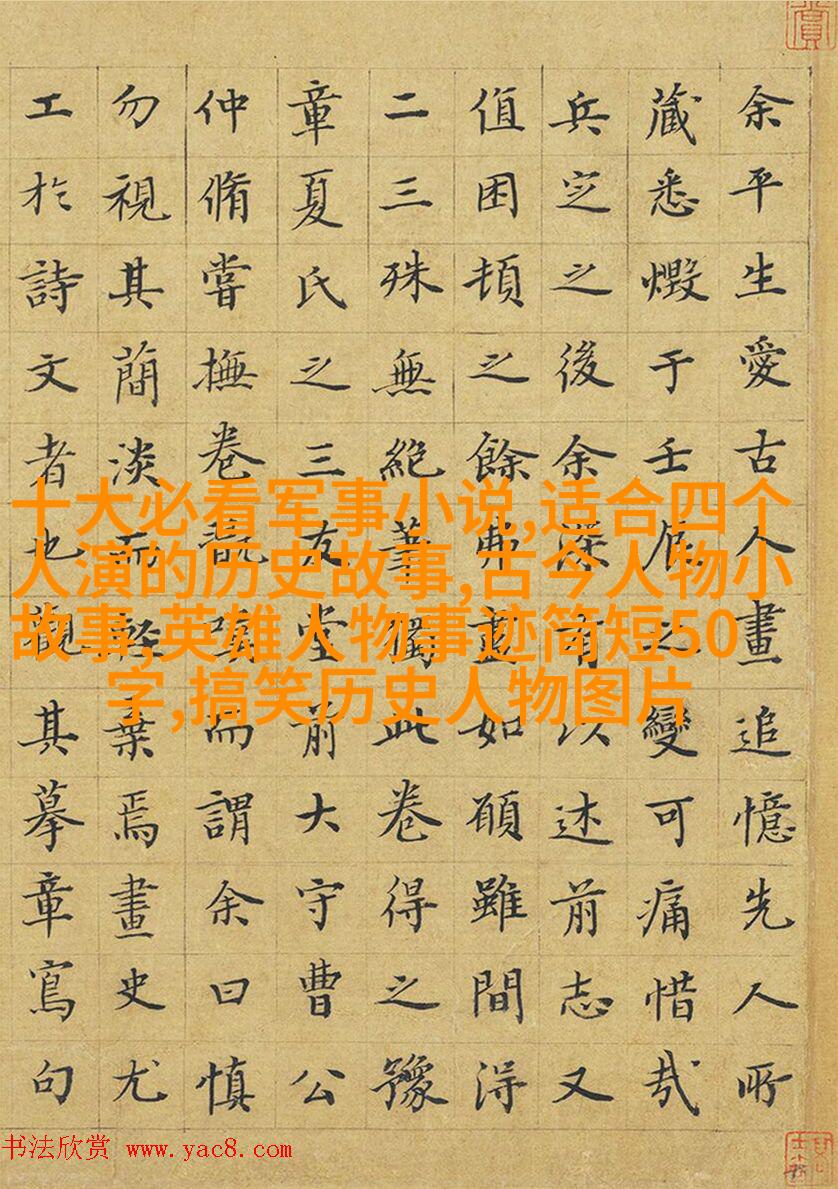 余平生愛古人畫追憶先人所
藏悉燬于壬辰之變可痛惜哉
兵定之後余深有以述前志又
值困頓之餘弗盡如願雖間得
二三殊無絕筆獨此卷得之豫
章夏氏之三友堂前大守曹公
仲脩嘗撫卷翫而謂余曰慎
勿視其簡淡而輕棄焉畫史尤
工於詩文者也觀其摹章寫句
十大必看军事小说,适合四个
人演的历史故事,古今人物小
故事,英雄人物事迹简短50
字,搞笑历史人物图片
书法欣赏 www.yac8.com